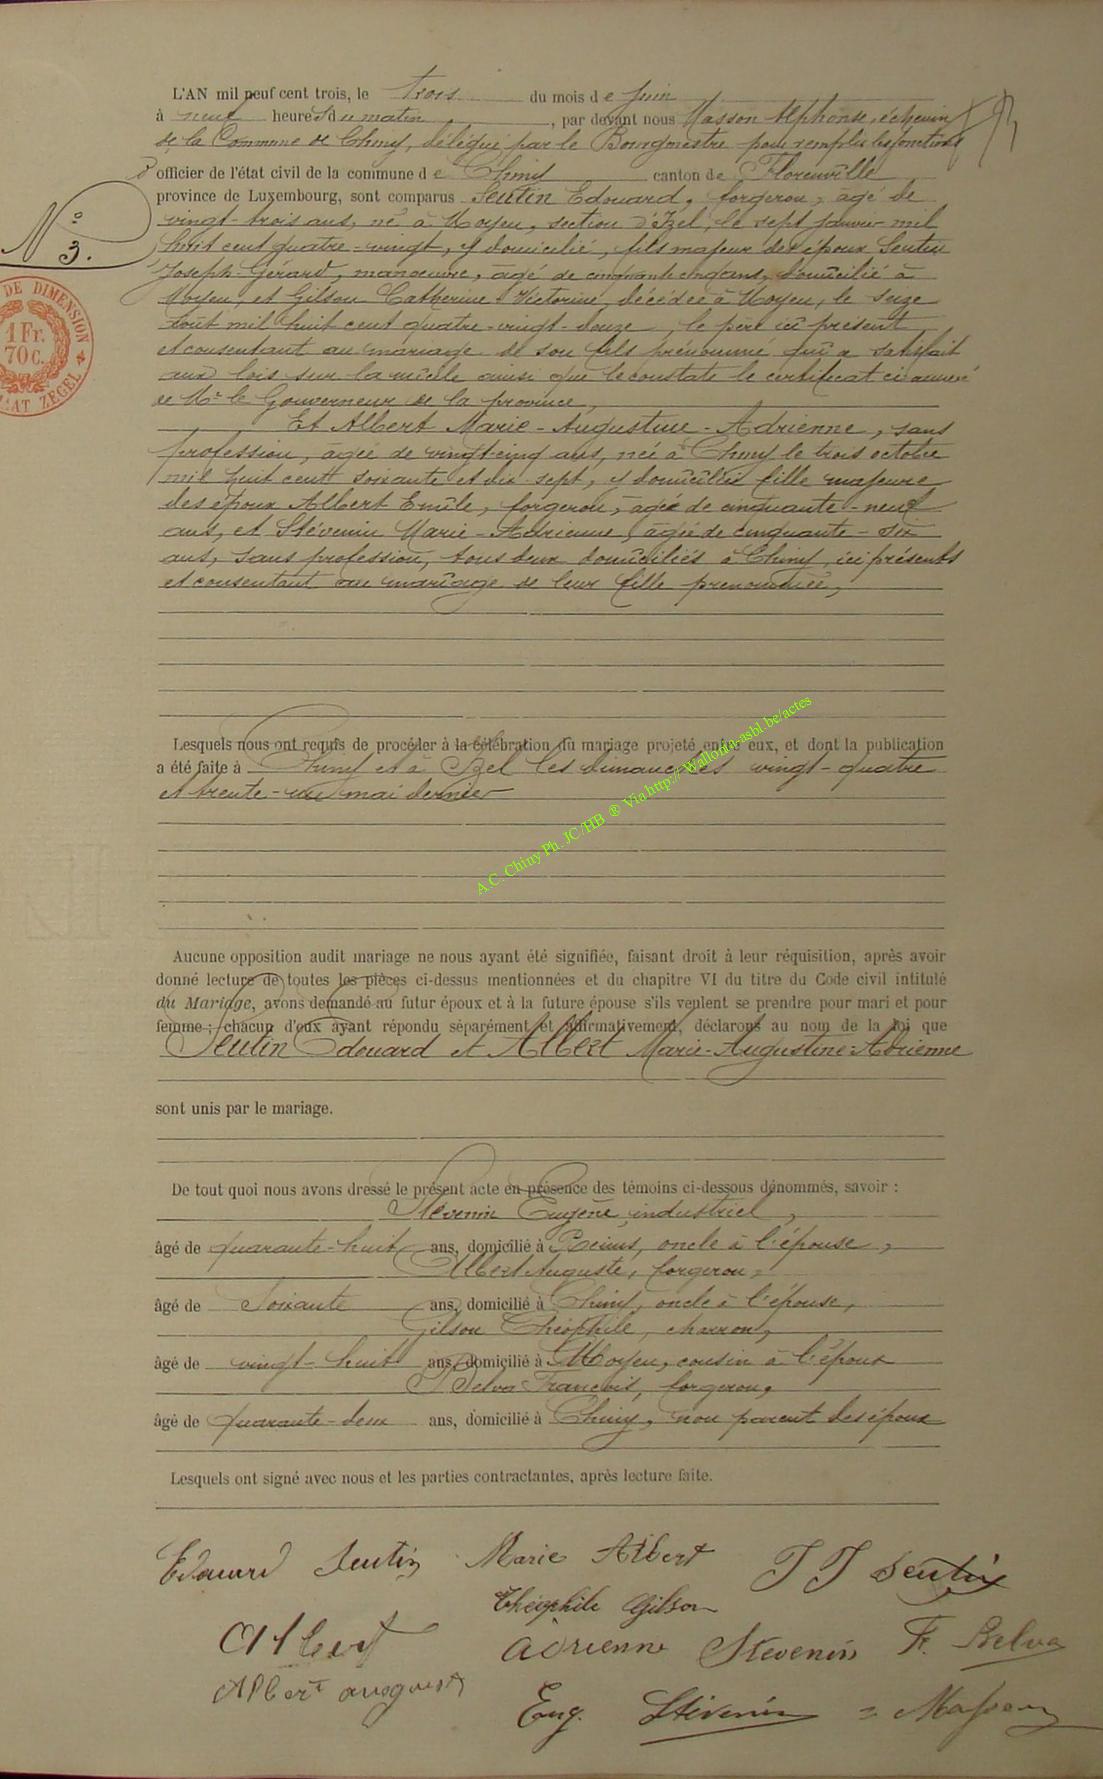 L'AN mil neuf cent trois, le trois du mois de Juin
à neuf heures du matin, par devant nous Masson Alphonse, échevin
de la Commune de Chiny, délégué par le Bourgmestre pour remplir les fonctions
d'officier de l'état civil de la commune de Chiny canton de Florenville
province de Luxembourg, sont comparus Seutin Edouard, forgeron, âgé de
vingt-trois ans, né à Moyen, section d'Izel, le sept janvier mil
N° 3.
huit cent quatre-vingt, y domicilié, fils majeur des époux Seutin
Joseph-Gérard, manoeuvre, âgé de cinquante cinq ans, domicilié à
Moyen, et Gilson Catherine Victorine, décédée à Moyen, le seize
août mil huit cent quatre-vingt-douze, le père ici présent
et consentant au mariage de son fils prénommé qui a satisfait
aux lois sur la milice ainsi que le constate le certificat ci annexé
de Mr le Gouverneur de la province,
Et Albert Marie-Augustine-Adrienne, sans
profession, âgée de vingt-cinq ans, née à Chiny le trois octobre
mil huit cent soixante et dix sept, y domiciliée fille majeure
des époux Albert Emile, forgeron, âgé de cinquante-neuf
ans, et Stévenin Marie-Adrienne, âgée de cinquante-six
ans, sans profession, tous deux domiciliés à Chiny, ici présents
et consentant au mariage de leur fille prénommée,
Lesquels nous ont requis de procéder à la célébration du mariage projeté entre eux, et dont la publication
a été faite à Chiny et à Izel les dimanches vingt-quatre
et trente-un mai dernier
A.C. Chiny Ph. JC/HB ® Via http://Wallonia-asbl.be/actes
Aucune opposition audit mariage ne nous ayant été signifiée, faisant droit à leur réquisition, après avoir
donné lecture de toutes les pièces ci-dessus mentionnées et du chapitre VI du titre du Code civil intitulé
du Mariage, avons demandé au futur époux et à la future épouse s'ils veulent se prendre pour mari et pour
femme ; chacun d'eux ayant répondu séparément et affirmativement, déclarons au nom de la loi que
Seutin Edouard et Albert Marie-Augustine-Adrienne
sont unis par le mariage.
De tout quoi nous avons dressé le présent acte en présence des témoins ci-dessous dénommés, savoir :
Stévenin Eugène, industriel,
âgé de quarante-huit ans, domicilié à Reims, oncle à l'épouse,
Albert Auguste, forgeron,
âgé de soixante ans, domicilié à Chiny, oncle à l'épouse,
Gilson Théophile, charron,
âgé de vingt-huit ans, domicilié à Moyen, cousin à l'époux
Belva François, forgeron,
âgé de quarante-deux ans, domicilié à Chiny, non parent des époux
Lesquels ont signé avec nous et les parties contractantes, après lecture faite.
Edouard Seutin Marie Albert J J Seutin
Théophile Gilson
Albert Adrienne Stévenin F. Belva
Albert auguste
Eug. Stévenin Masson
DE DIMENSION
1 Fr.
70 c.
ZEGEL